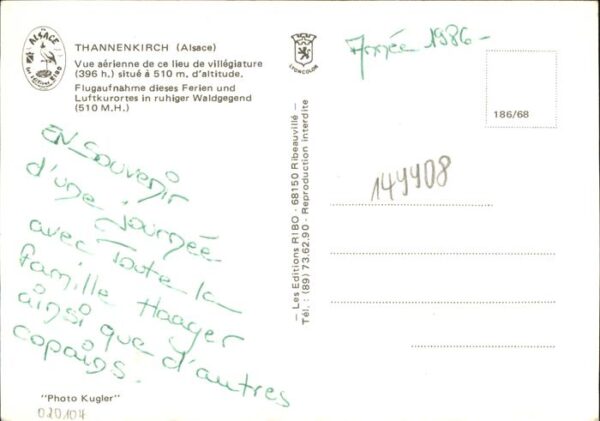 ALSACE
THANNENKIRCH (Alsace)
Vue aérienne de ce lieu de villégiature
(396 h.) situé à 510 m. d'altitude.
Flugaufnahme dieses Ferien und
Luftkurortes in ruhiger Waldgegend
(510 M.H.)
EN Souvenir
d'une journée
avec Toute la
famille Haager
ainsi que d'autres
copains.
"Photo Kugler"
020104
— Les Editions RIBO - 68150 Ribeauvillé —
Tél. : (89) 73.62.90 - Reproduction interdite
LYONCOLOR
Année 1986 -
186/68
149908